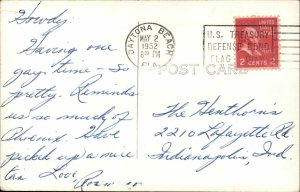 Howdy:
Having one
gay time - so
pretty. Reminds
us so much of
Phoenix. Have
picked up a nice
tan Love,
DAYTONA BEACH
MAY 2
1952
PM
FLA.
U.S. TREASURY
DEFENSE BOND
FLAG
UNITED
2 CENTS 2
POST CARD
The Henthorn's
2210 Lafayette Rd
Indianapolis, Ind.